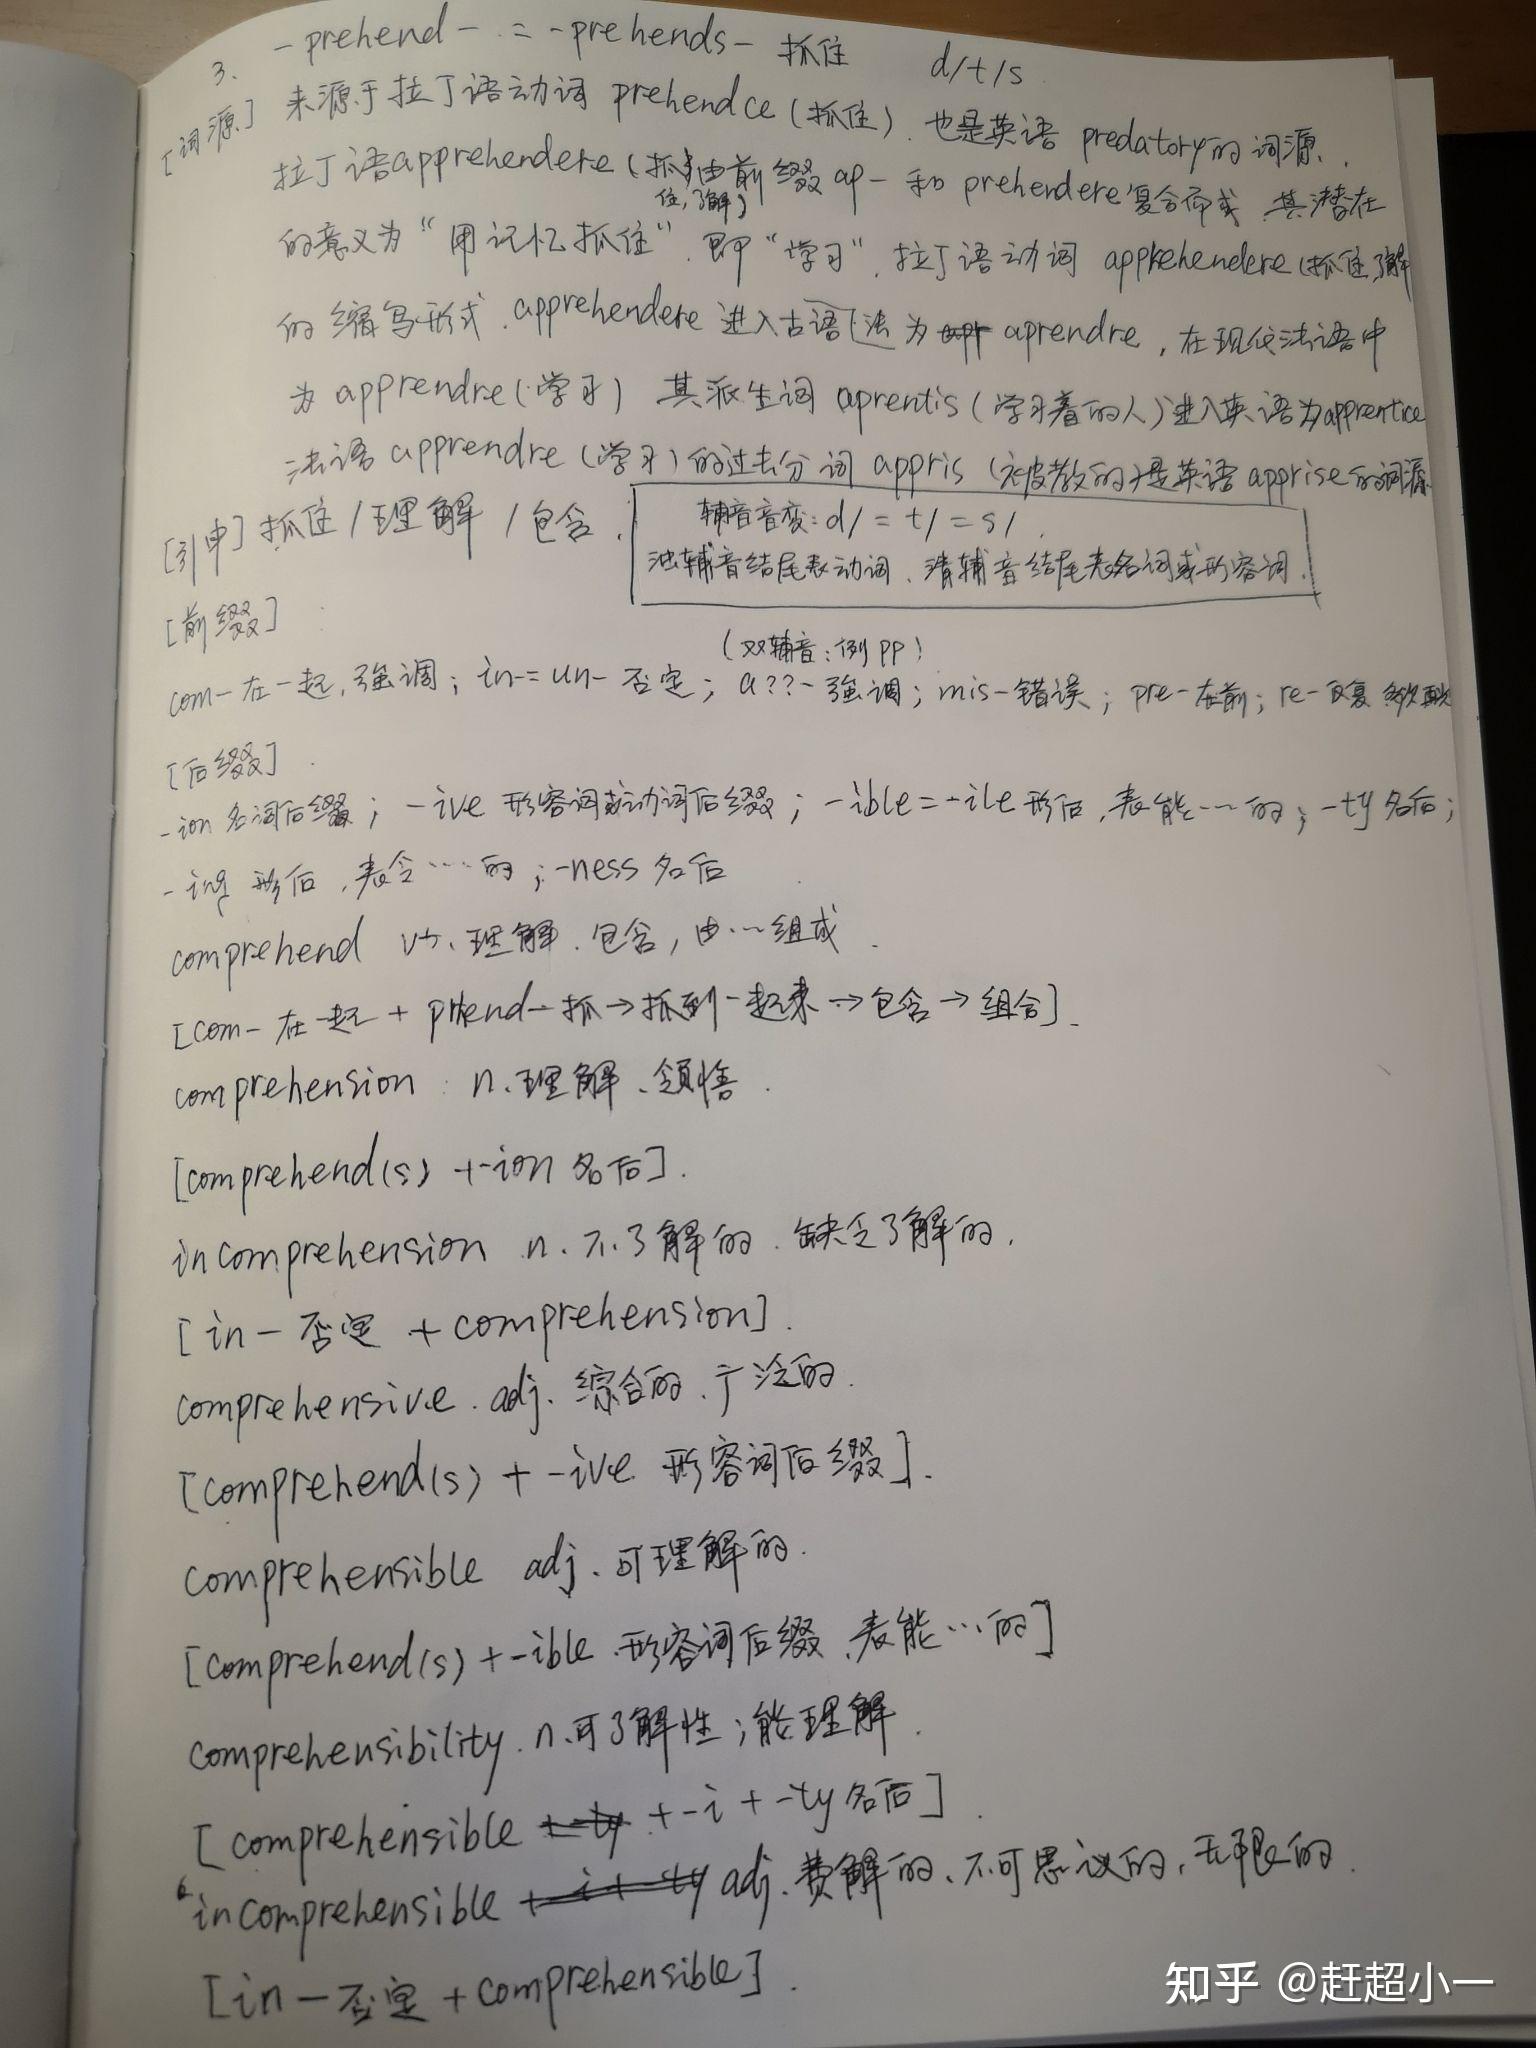 3. -prehend- = -prehends- 抓住 d/t/s
[词源] 来源于拉丁语动词 prehendce (抓住). 也是英语 predatory的词源.
拉丁语apprehendere (抓住,了解) 由前缀 ap- 和 prehendere复合而成 其潜在
的意义为“用记忆抓住”. 即“学习”. 拉丁语动词 apprehendere (抓住,了解
的缩写形式. apprehendere 进入古语法为 aprendre, 在现代法语中
为 apprendre (学习) 其派生词 aprentis (学习着的人) 进入英语为apprentice
法语 apprendre (学习) 的过去分词 appris (被教的) 是英语 apprise的词源
[引申] 抓住 / 理解 / 包含.
辅音音变: d/ = t/ = s/.
浊辅音结尾表动词、清辅音结尾表名词或形容词.
[前缀]
(双辅音: 例 pp)
com- 在一起, 强调; in-= un- 否定; a??- 强调; mis- 错误; pre- 在前; re- 反复
[后缀].
-ion 名词后缀; -ive 形容词或动词后缀; -ible = -ile 形后, 表能…的; -ty 名后;
-ing 形后, 表令…的; -ness 名后
comprehend vt. 理解. 包含, 由…组成.
[com- 在一起 + prhend- 抓→抓到一起来→包含→组合].
comprehension n. 理解、领悟.
[comprehend(s) + -ion 名后].
incomprehension n. 不了解的. 缺乏了解的.
[in- 否定 + comprehension].
comprehensive. adj. 综合的、广泛的.
[comprehend(s) + -ive 形容词后缀].
comprehensible adj. 可理解的.
[comprehend(s) + -ible 形容词后缀, 表能…的]
comprehensibility. n. 可了解性; 能理解.
[comprehensible + -i + -ty 名后].
incomprehensible adj. 费解的、不可思议的, 无限的.
[in- 否定 + comprehensible].
知乎 @赶超小一